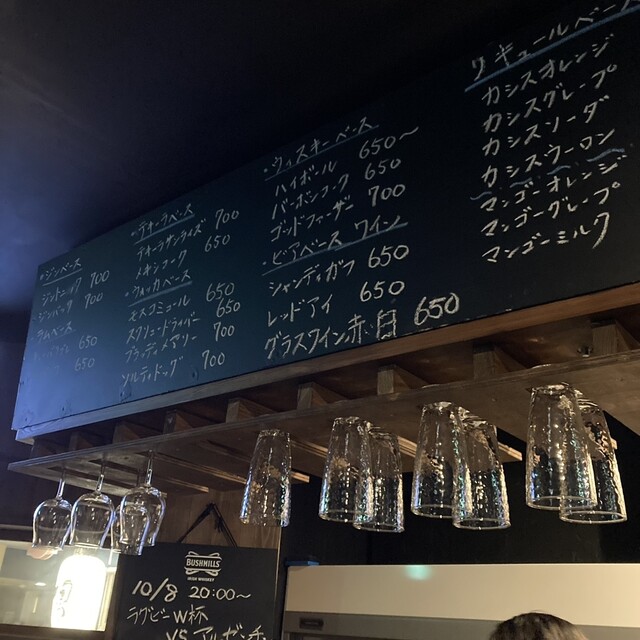 ・ジンベース
ジントニック 700
ジンバック 700
ラムベース
650
・テキーラベース
テキーラサンライズ 700
メキシコーク 650
・ウォッカベース
モスコミュール 650
スクリュードライバー 650
ブラッディメアリー 700
ソルティドッグ 700
・ウィスキーベース
ハイボール 650〜
バーボンコーク 650
ゴッドファーザー 700
・ビアベース ワイン
シャンディガフ 650
レッドアイ 650
グラスワイン赤・白 650
リキュールベース
カシスオレンジ
カシスグレープ
カシスソーダ
カシスウーロン
マンゴーオレンジ
マンゴーグレープ
マンゴーミルク
BUSHMILLS
IRISH WHISKEY
10/8 20:00〜
ラグビーW杯
VS アルゼンチ